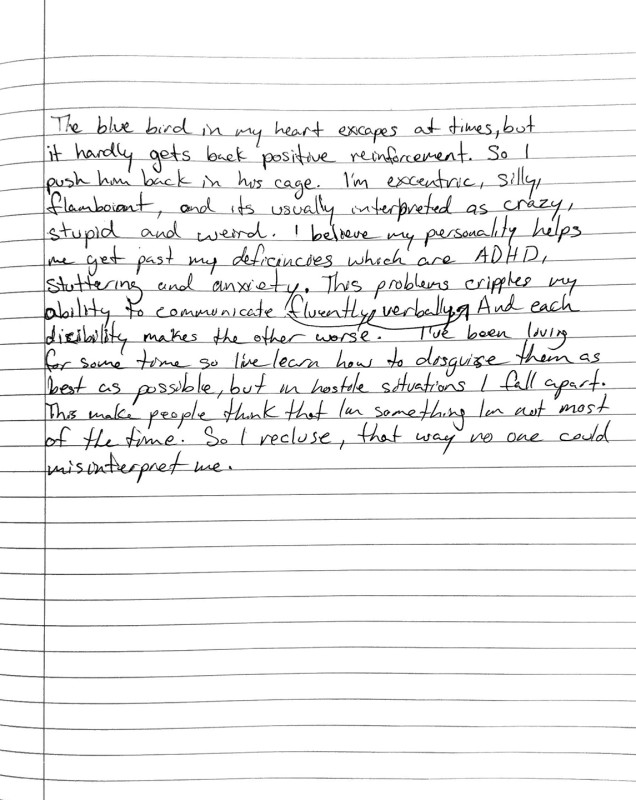 The blue bird in my heart excapes at times, but
it hardly gets back positive reinforcement. So I
push him back in his cage. I'm excentric, silly,
flamboiant, and its usually interpreted as crazy,
stupid and weird. I believe my personality helps
me get past my deficincies which are ADHD,
stuttering and anxiety. This problems cripples my
ability to communicate fluently, verbally. And each
disibility makes the other worse. I've been living
for some time so I've learn how to disguise them as
best as possible, but in hostile situations I fall apart.
This make people think that I'm something I'm not most
of the time. So I recluse, that way no one could
misinterpret me.